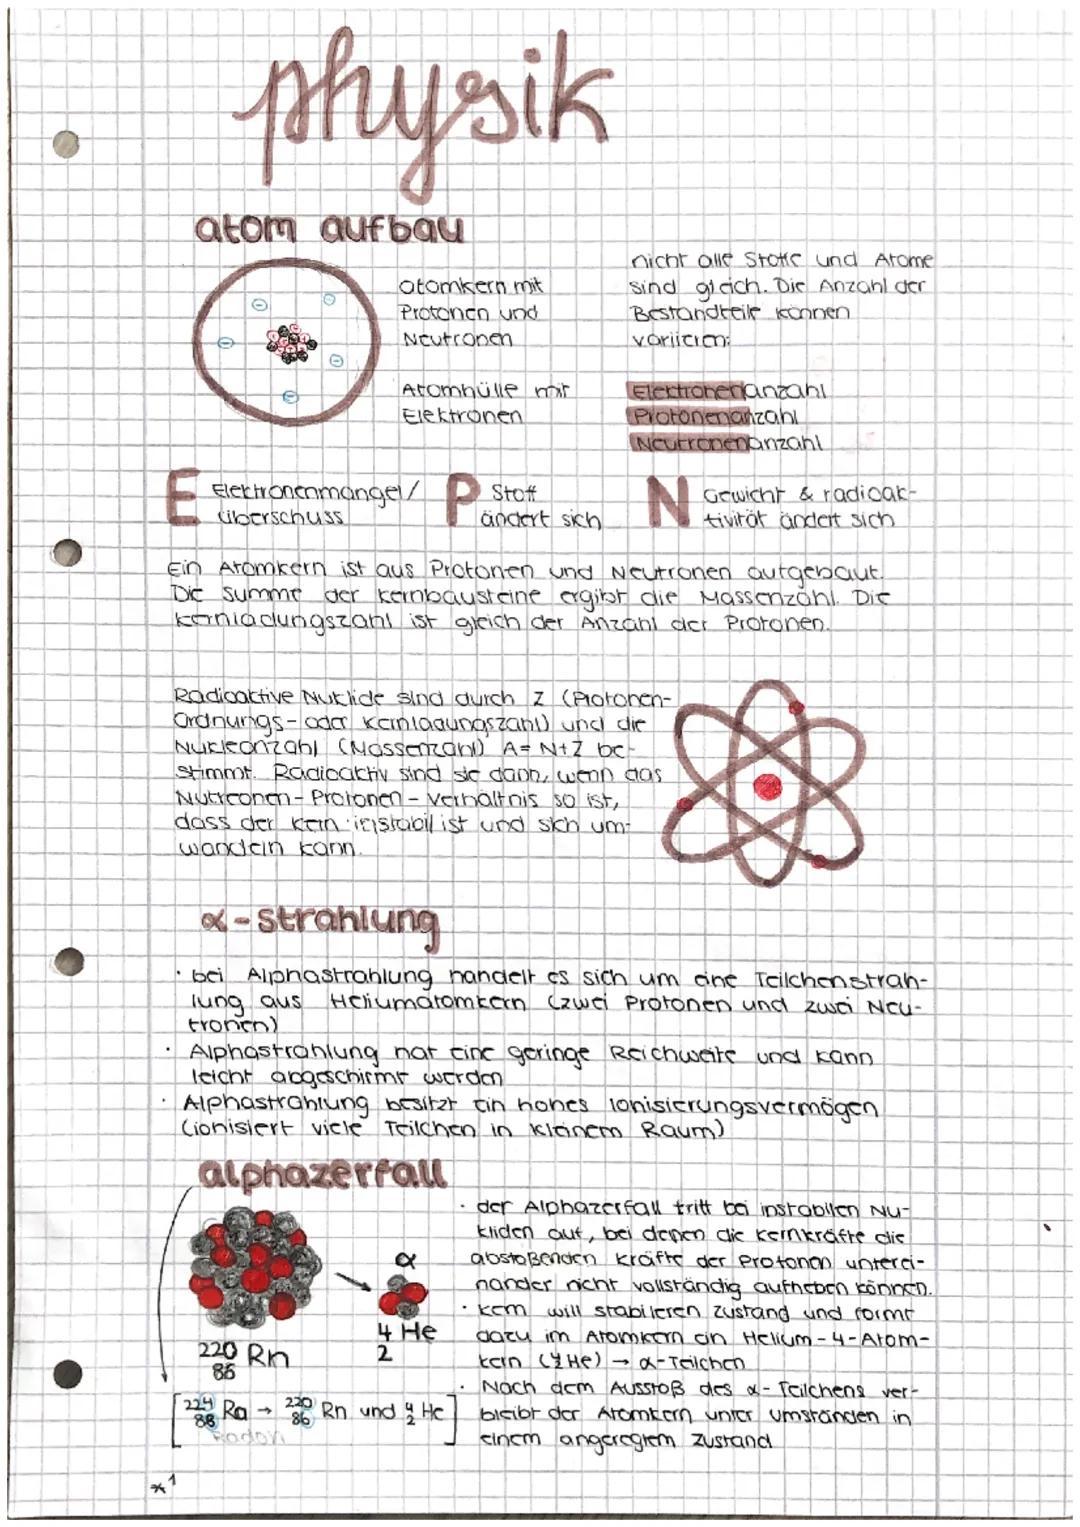 physik
atom aufbau
Atomkern mit
Protonen und
Neutronen
Atomhülle mit
Elektronen
nicht alle Stoffe und Atome
sind gleich. Die Anzahl der
Bestandteile können
variieren:
Elektronenanzahl
Protonenanzahl
Neutronenanzahl
E Elektronenmangel/
überschuss
P Stoff
ändert sich
N Gewicht & radioak-
tivität ändert sich
Ein Atomkern ist aus Protonen und Neutronen aufgebaut.
Die Summe der Kernbausteine ergibt die Massenzahl. Die
Kernladungszahl ist gleich der Anzahl der Protonen.
Radioaktive Nuklide sind durch Z (Protonen-
Ordnungs- oder Kernladungszahl) und die
Nukleanzahl (Massenzahl) A = N+Z be-
stimmt. Radioaktiv sind sie dann, wenn das
Nutreonen-Protonen-Verhältnis so ist,
dass der Kern instabil ist und sich um-
wandeln kann.
α-strahlung
· bei Alphastrahlung handelt es sich um eine Teilchenstrah-
lung aus Heliumatomkern (zwei Protonen und zwei Neu-
tronen)
· Alphastrahlung hat eine geringe Reichweite und kann
leicht abgeschirmt werden
· Alphastrahlung besitzt ein hohes Ionisierungsvermögen
(ionisiert viele Teilchen in kleinem Raum)
alphazerfall
α
4 He
2
220 Rn
86
[224 Ra → 220 Rn und 4 He]
88 86 2
Radon
· der Alphazerfall tritt bei instabilen Nu-
kliden auf, bei denen die Kernkräfte die
abstoßenden Kräfte der Protonen unterei-
nander nicht vollständig aufheben können.
· Kern will stabileren Zustand und formt
dazu im Atomkern ein Helium-4-Atom-
kern (4/2 He) → α-Teilchen
· Nach dem Ausstoß des α-Teilchens ver-
bleibt der Atomkern unter umständen in
einem angeregtem Zustand
*1